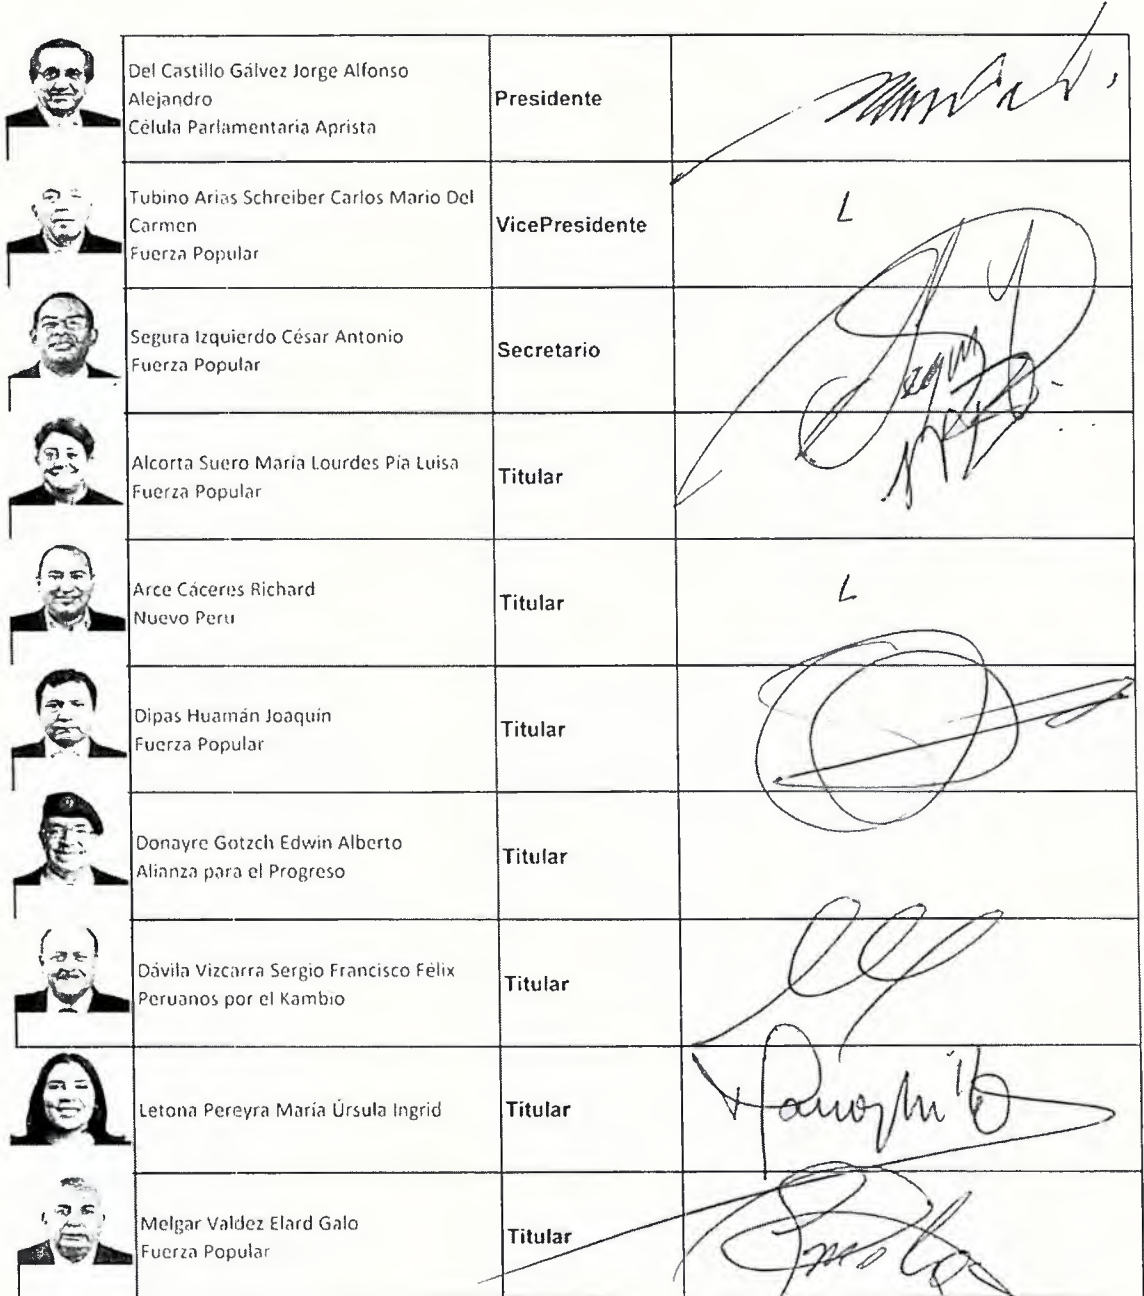 Del Castillo Gálvez Jorge Alfonso
Alejandro
Célula Parlamentaria Aprista
Presidente
Tubino Arias Schreiber Carlos Mario Del
Carmen
Fuerza Popular
VicePresidente
L
Segura Izquierdo César Antonio
Fuerza Popular
Secretario
Alcorta Suero María Lourdes Pía Luisa
Fuerza Popular
Titular
Arce Cáceres Richard
Nuevo Peru
Titular
L
Dipas Huamán Joaquín
Fuerza Popular
Titular
Donayre Gotzch Edwin Alberto
Alianza para el Progreso
Titular
Dávila Vizcarra Sergio Francisco Félix
Peruanos por el Kambio
Titular
Letona Pereyra María Úrsula Ingrid
Titular
Melgar Valdez Elard Galo
Fuerza Popular
Titular